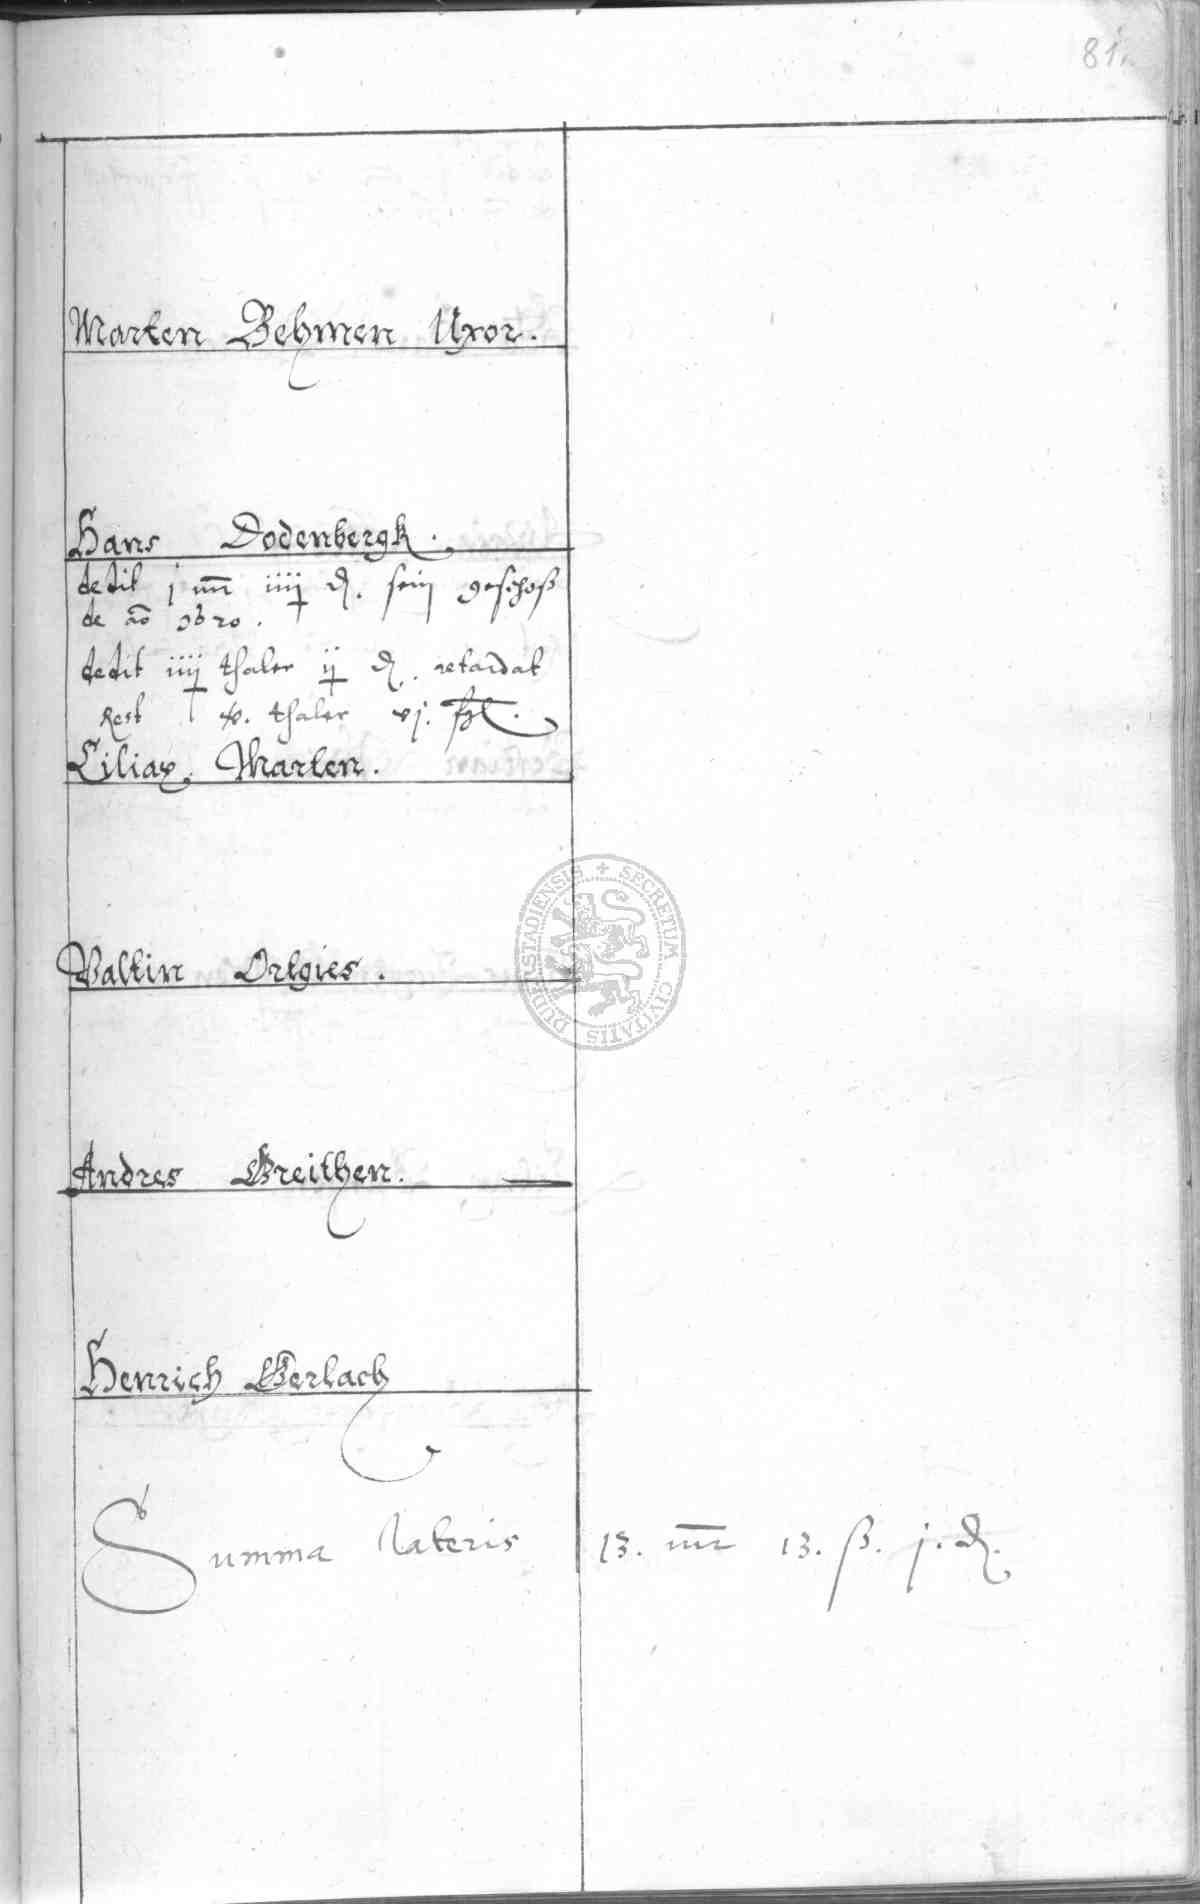 81.
Marten Behmen Uxor.
Hans Dodenbergk.
dedit j mr iiij d. sein geschoß
de ao
dedit iiij thaler ij d. retardat
Rest thaler vj.
Ciliax Marten.
Valtin Ortgies.
Andres Greithen.
Henrich Gerlach
Summa lateris 13. mr 13. ß. j. d.
SECRETUM CIVITATIS DUDERSTADIENSIS